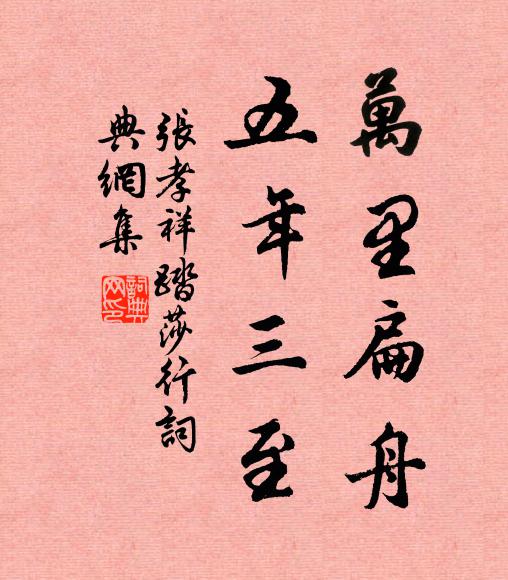 萬里扁舟
五年三至
張孝祥踏莎行詞
典網集
詞典网印